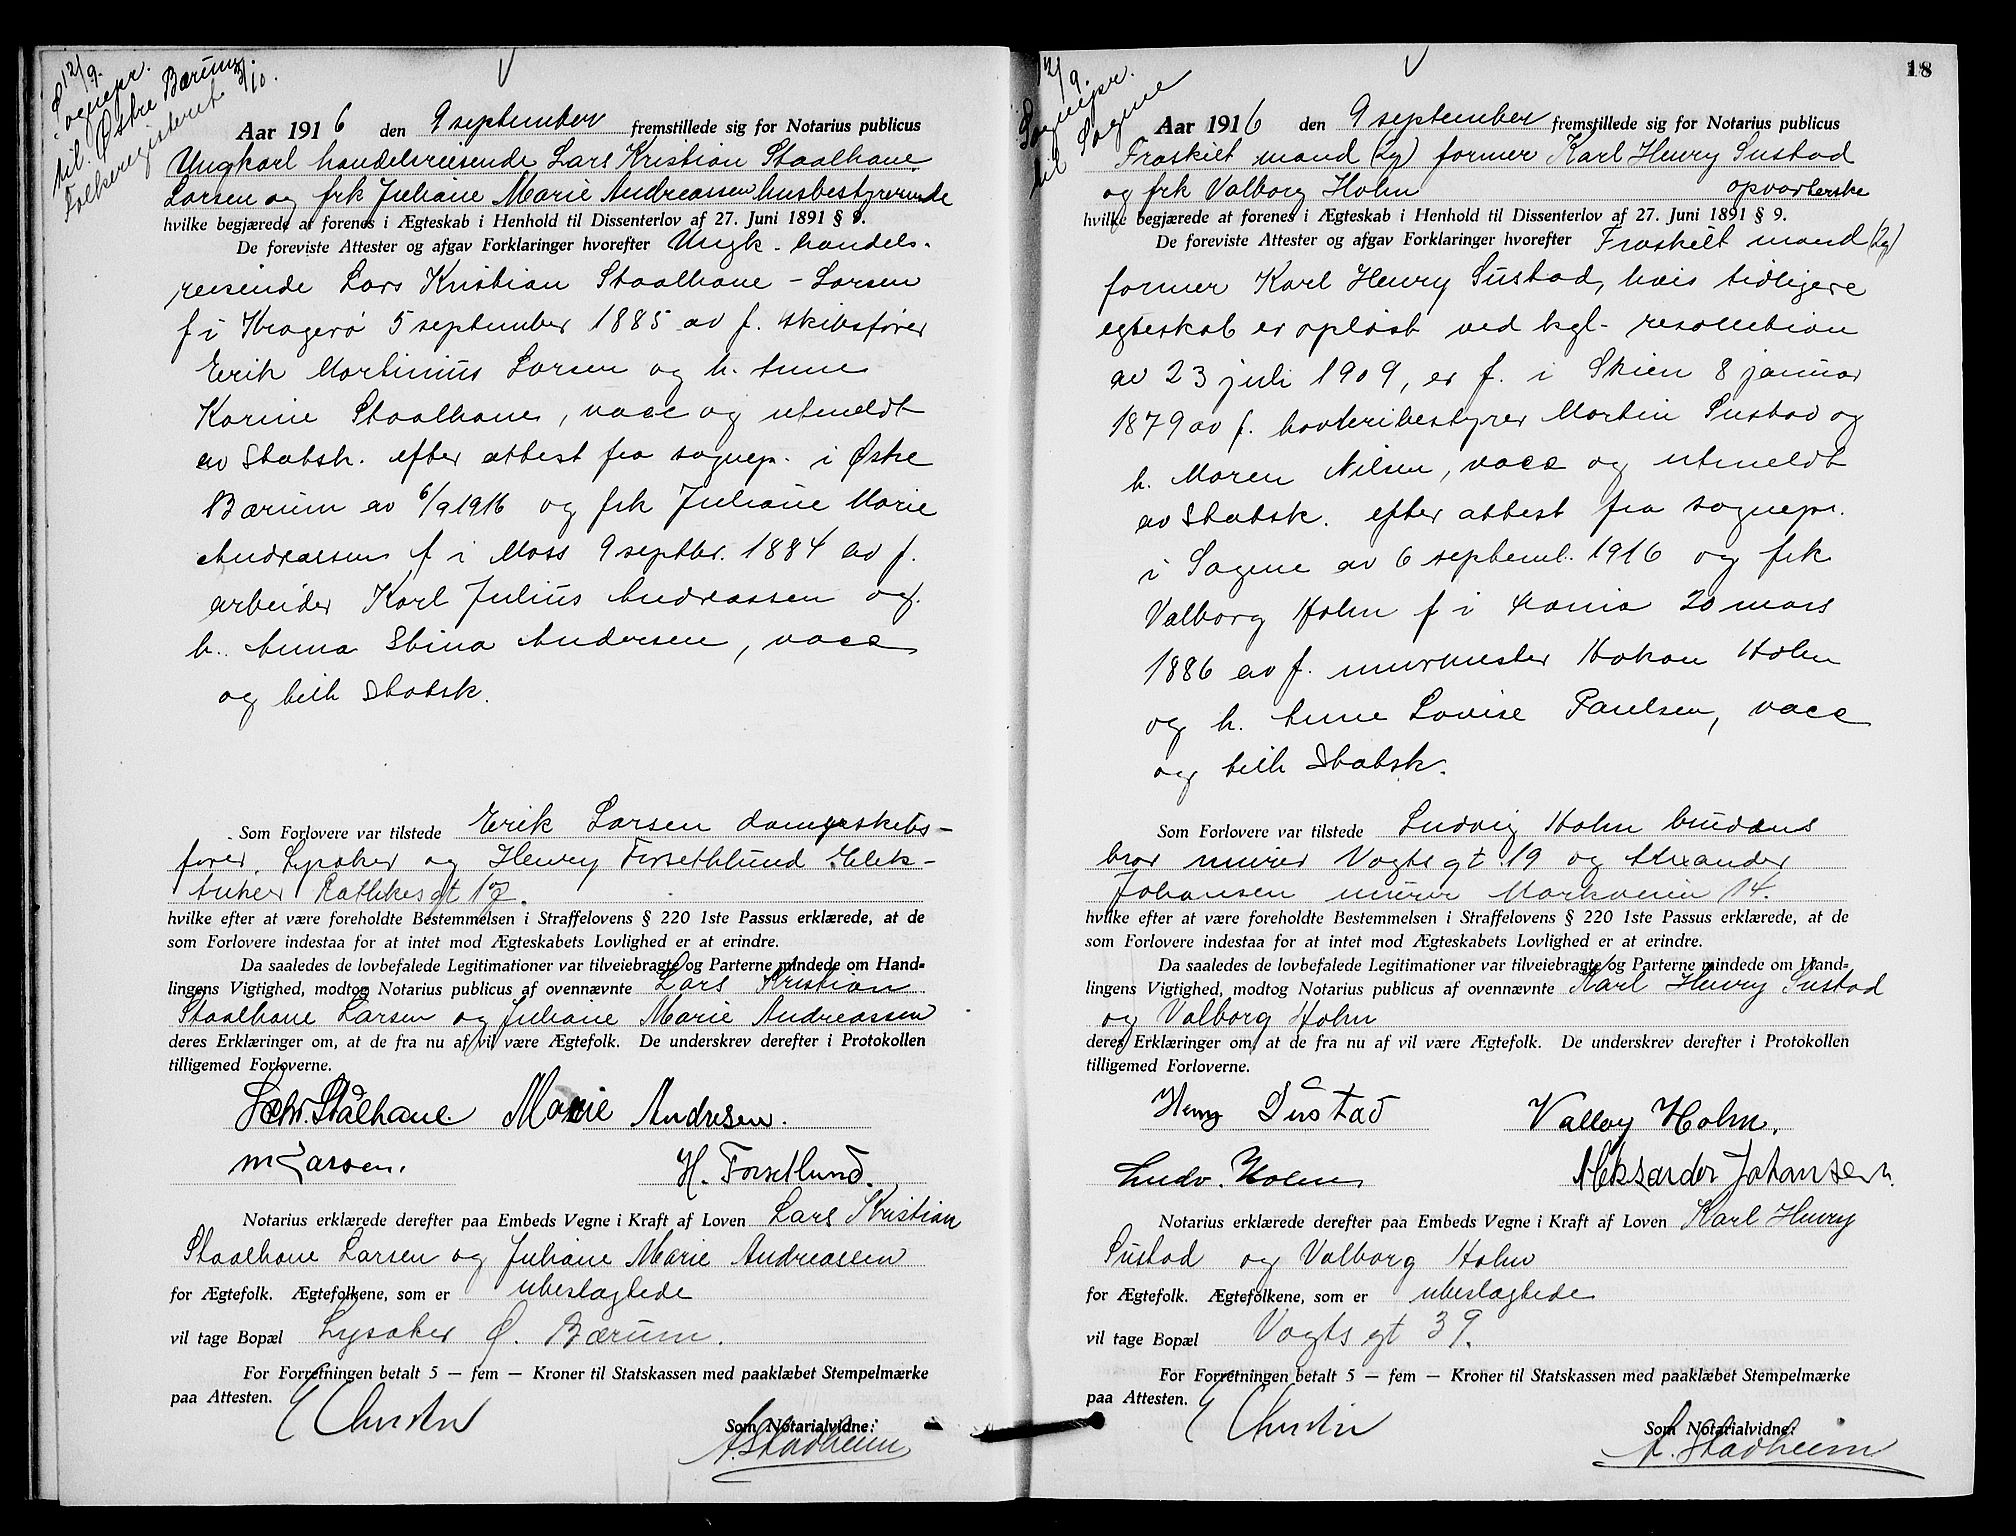 12/9.
sognepr.
til Østre Bærum
Folkeregisteret 3/10.
Aar 1916 den 9 september fremstillede sig for Notarius publicus
Ungkarl handelsreisende Lars Kristian Staalhane
Larsen og frk Juliane Marie Andreassen husbestyrerinde
hvilke begjærede at forenes i Ægteskab i Henhold til Dissenterlov af 27. Juni 1891 § 9.
De foreviste Attester og afgav Forklaringer hvorefter Ungk. handels-
reisende Lars Kristian Staalhane-Larsen
f i Kragerø 5 september 1885 av f. skibsfører
Erik Martinius Larsen og h. Anne
Karine Staalhane, vacc og utmeldt
av Statsk. efter attest fra sognep. i Øste
Bærum av 6/9 1916 og frk Juliane Marie
Andreassen f i Moss 9 septbr. 1884 av f.
arbeider Karl Julius Andreassen og
h. Anna Stina Andersen, vacc
og tilh Statsk.
Som Forlovere var tilstede Erik Larsen dampskibs-
fører, Lysaker og Henry Forsethlund Elek-
triker Rathkesgt 17.
hvilke efter at være foreholdte Bestemmelsen i Straffelovens § 220 1ste Passus erklærede, at de
som Forlovere indestaa for at intet mod Ægteskabets Lovlighed er at erindre.
Da saaledes de lovbefalede Legitimationer var tilveiebragte og Parterne mindede om Hand-
lingens Vigtighed, modtog Notarius publicus af ovennævnte Lars Kristian
Staalhane Larsen og Juliane Marie Andreassen
deres Erklæringer om, at de fra nu af vil være Ægtefolk. De underskrev derefter i Protokollen
tilligemed Forloverne.
Stålhane. Marie Andresen.
Larsen. H. Forsetlund.
Notarius erklærede derefter paa Embeds Vegne i Kraft af Loven Lars Kristian
Staalhane Larsen og Juliane Marie Andreassen
for Ægtefolk. Ægtefolkene, som er ubeslagtede
vil tage Bopæl Lysaker Ø. Bærum.
For Forretningen betalt 5 — fem — Kroner til Statskassen med paaklæbet Stempelmærke
paa Attesten.
Som Notarialvidne:
A. Stadheim
18
12/9.
Sognepr.
til Sagene
Aar 1916 den 9 september fremstillede sig for Notarius publicus
Fraskilt mand (kgl) former Karl Henry Sustad
og frk Valborg Holm opvarterske
hvilke begjærede at forenes i Ægteskab i Henhold til Dissenterlov af 27. Juni 1891 § 9.
De foreviste Attester og afgav Forklaringer hvorefter Fraskilt mand (kgl)
former Karl Henry Sustad, hvis tidligere
egteskab er opløst ved kgl- resolution
av 23 juli 1909, er f. i Skien 8 januar
1879 av f. Martin Sustad og
h. Maren Nilsen, vacc og utmeldt
av Statsk. efter attest fra sognepr.
i Sagene av 6 septemb. 1916 og frk
Valborg Holm f i Krania 20 mars
1886 av f. murmester Hakon Holm
og h. Anne Lovise Paulsen, vacc
og tilh Statsk.
Som Forlovere var tilstede Ludvig Holm brudens
bror murer Vogts gt. 19 og Alexander
Johansen murer Markveien 14.
hvilke efter at være foreholdte Bestemmelsen i Straffelovens § 220 1ste Passus erklærede, at de
som Forlovere indestaa for at intet mod Ægteskabets Lovlighed er at erindre.
Da saaledes de lovbefalede Legitimationer var tilveiebragte og Parterne mindede om Hand-
lingens Vigtighed, modtog Notarius publicus af ovennævnte Karl Henry Sustad
og Valborg Holm
deres Erklæringer om, at de fra nu af vil være Ægtefolk. De underskrev derefter i Protokollen
tilligemed Forloverne.
Henry Sustad Valborg Holm.
Ludv. Holm Aleksander Johansen.
Notarius erklærede derefter paa Embeds Vegne i Kraft af Loven Karl Henry
Sustad og Valborg Holm
for Ægtefolk. Ægtefolkene, som er ubeslagtede
vil tage Bopæl Vogts gt 39.
For Forretningen betalt 5 — fem — Kroner til Statskassen med paaklæbet Stempelmærke
paa Attesten.
Som Notarialvidne:
A. Stadheim